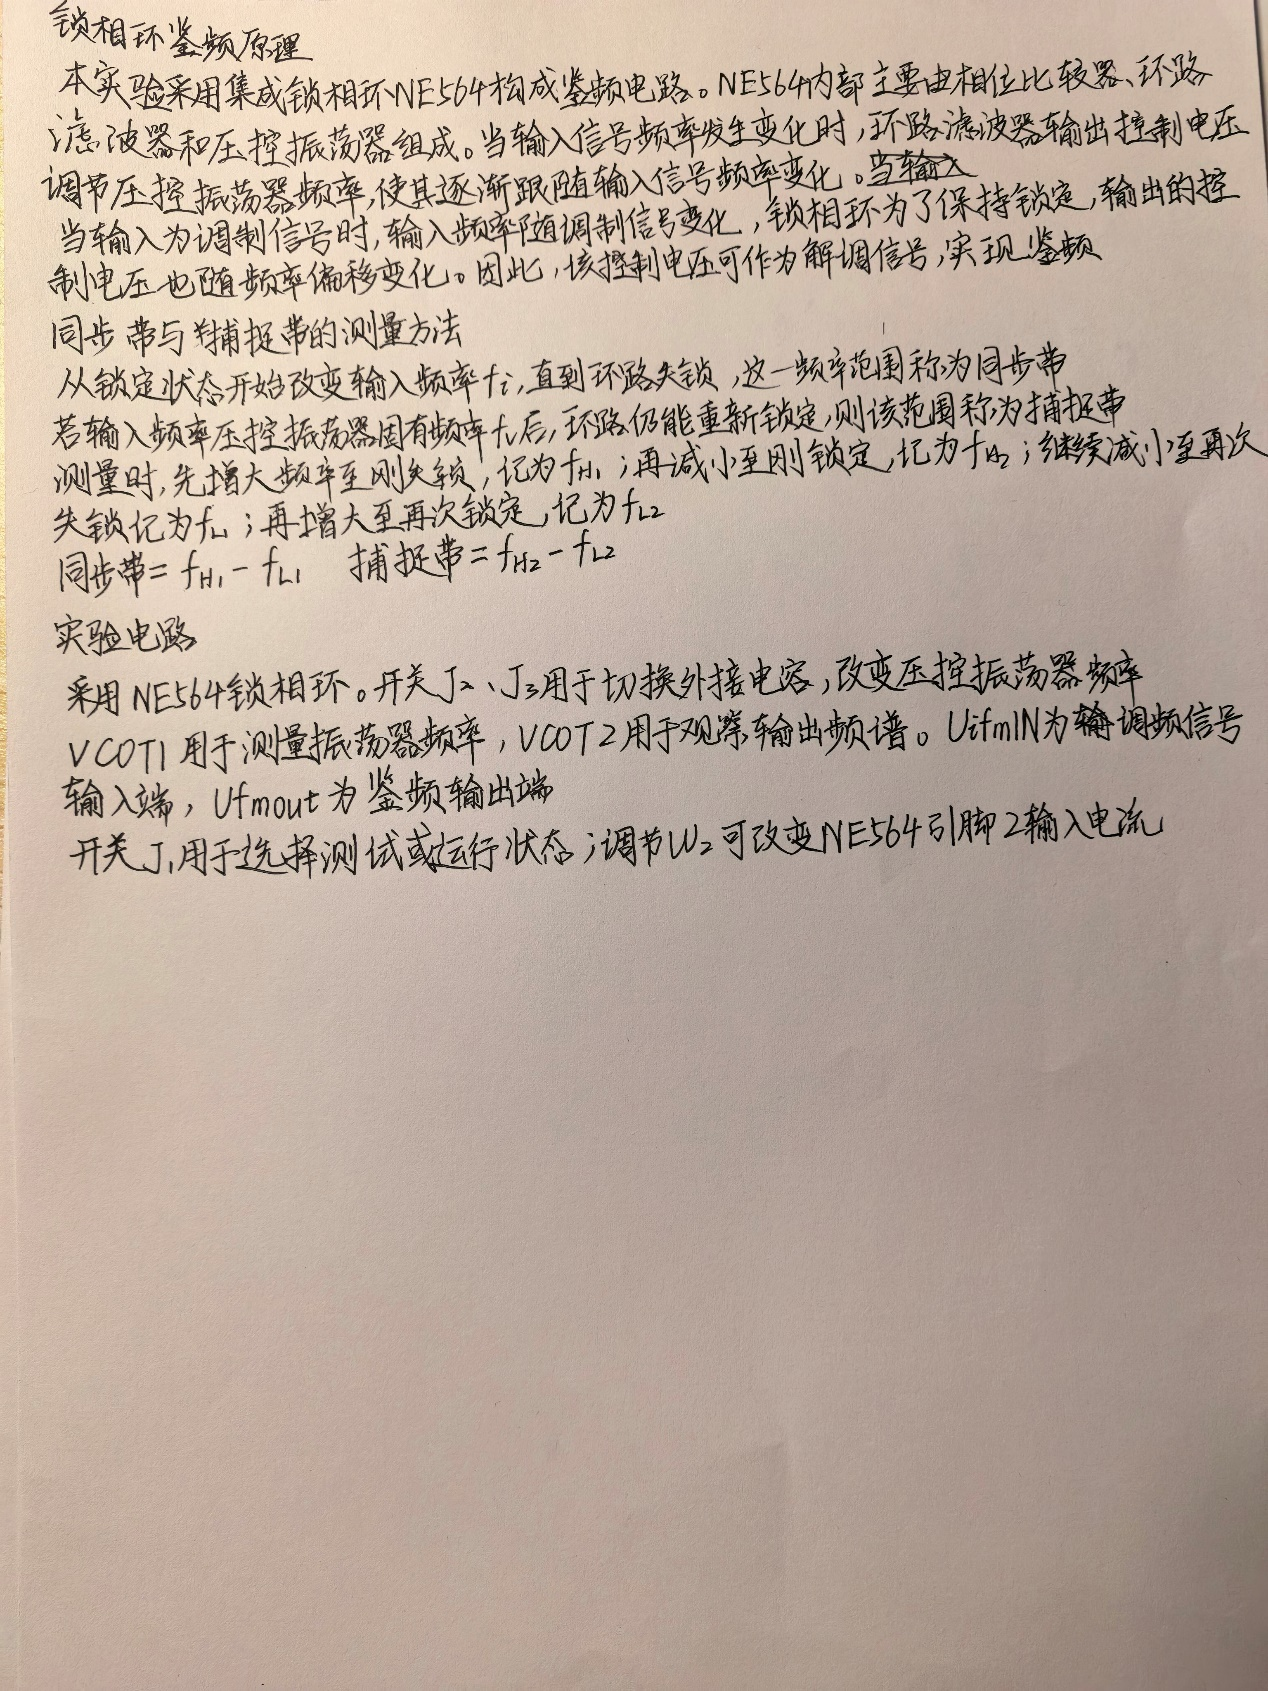 锁相环鉴频原理
本实验采用集成锁相环NE564构成鉴频电路。NE564内部主要由相位比较器、环路
滤波器和压控振荡器组成。当输入信号频率发生变化时,环路滤波器输出控制电压
调节压控振荡器频率,使其逐渐跟随输入信号频率变化。当输入
当输入为调制信号时,输入频率随调制信号变化,锁相环为了保持锁定,输出的控
制电压也随频率偏移变化。因此,该控制电压可作为解调信号,实现鉴频
同步带与捕捉带的测量方法
从锁定状态开始改变输入频率fi,直到环路失锁,这一频率范围称为同步带
若输入频率压控振荡器固有频率fv后,环路仍能重新锁定,则该范围称为捕捉带
测量时,先增大频率至刚失锁,记为fH1;再减小至刚锁定,记为fH2;继续减小至再次
失锁记为fL1;再增大至再次锁定,记为fL2
同步带=fH1-fL1 捕捉带=fH2-fL2
实验电路
采用NE564锁相环。开关J2、J3用于切换外接电容,改变压控振荡器频率
VCOT1用于测量振荡器频率,VCOT2用于观察输出频谱。UifmIN为调频信号
输入端,Ufmout为鉴频输出端
开关J1用于选择测试或运行状态;调节W2可改变NE564引脚2输入电流